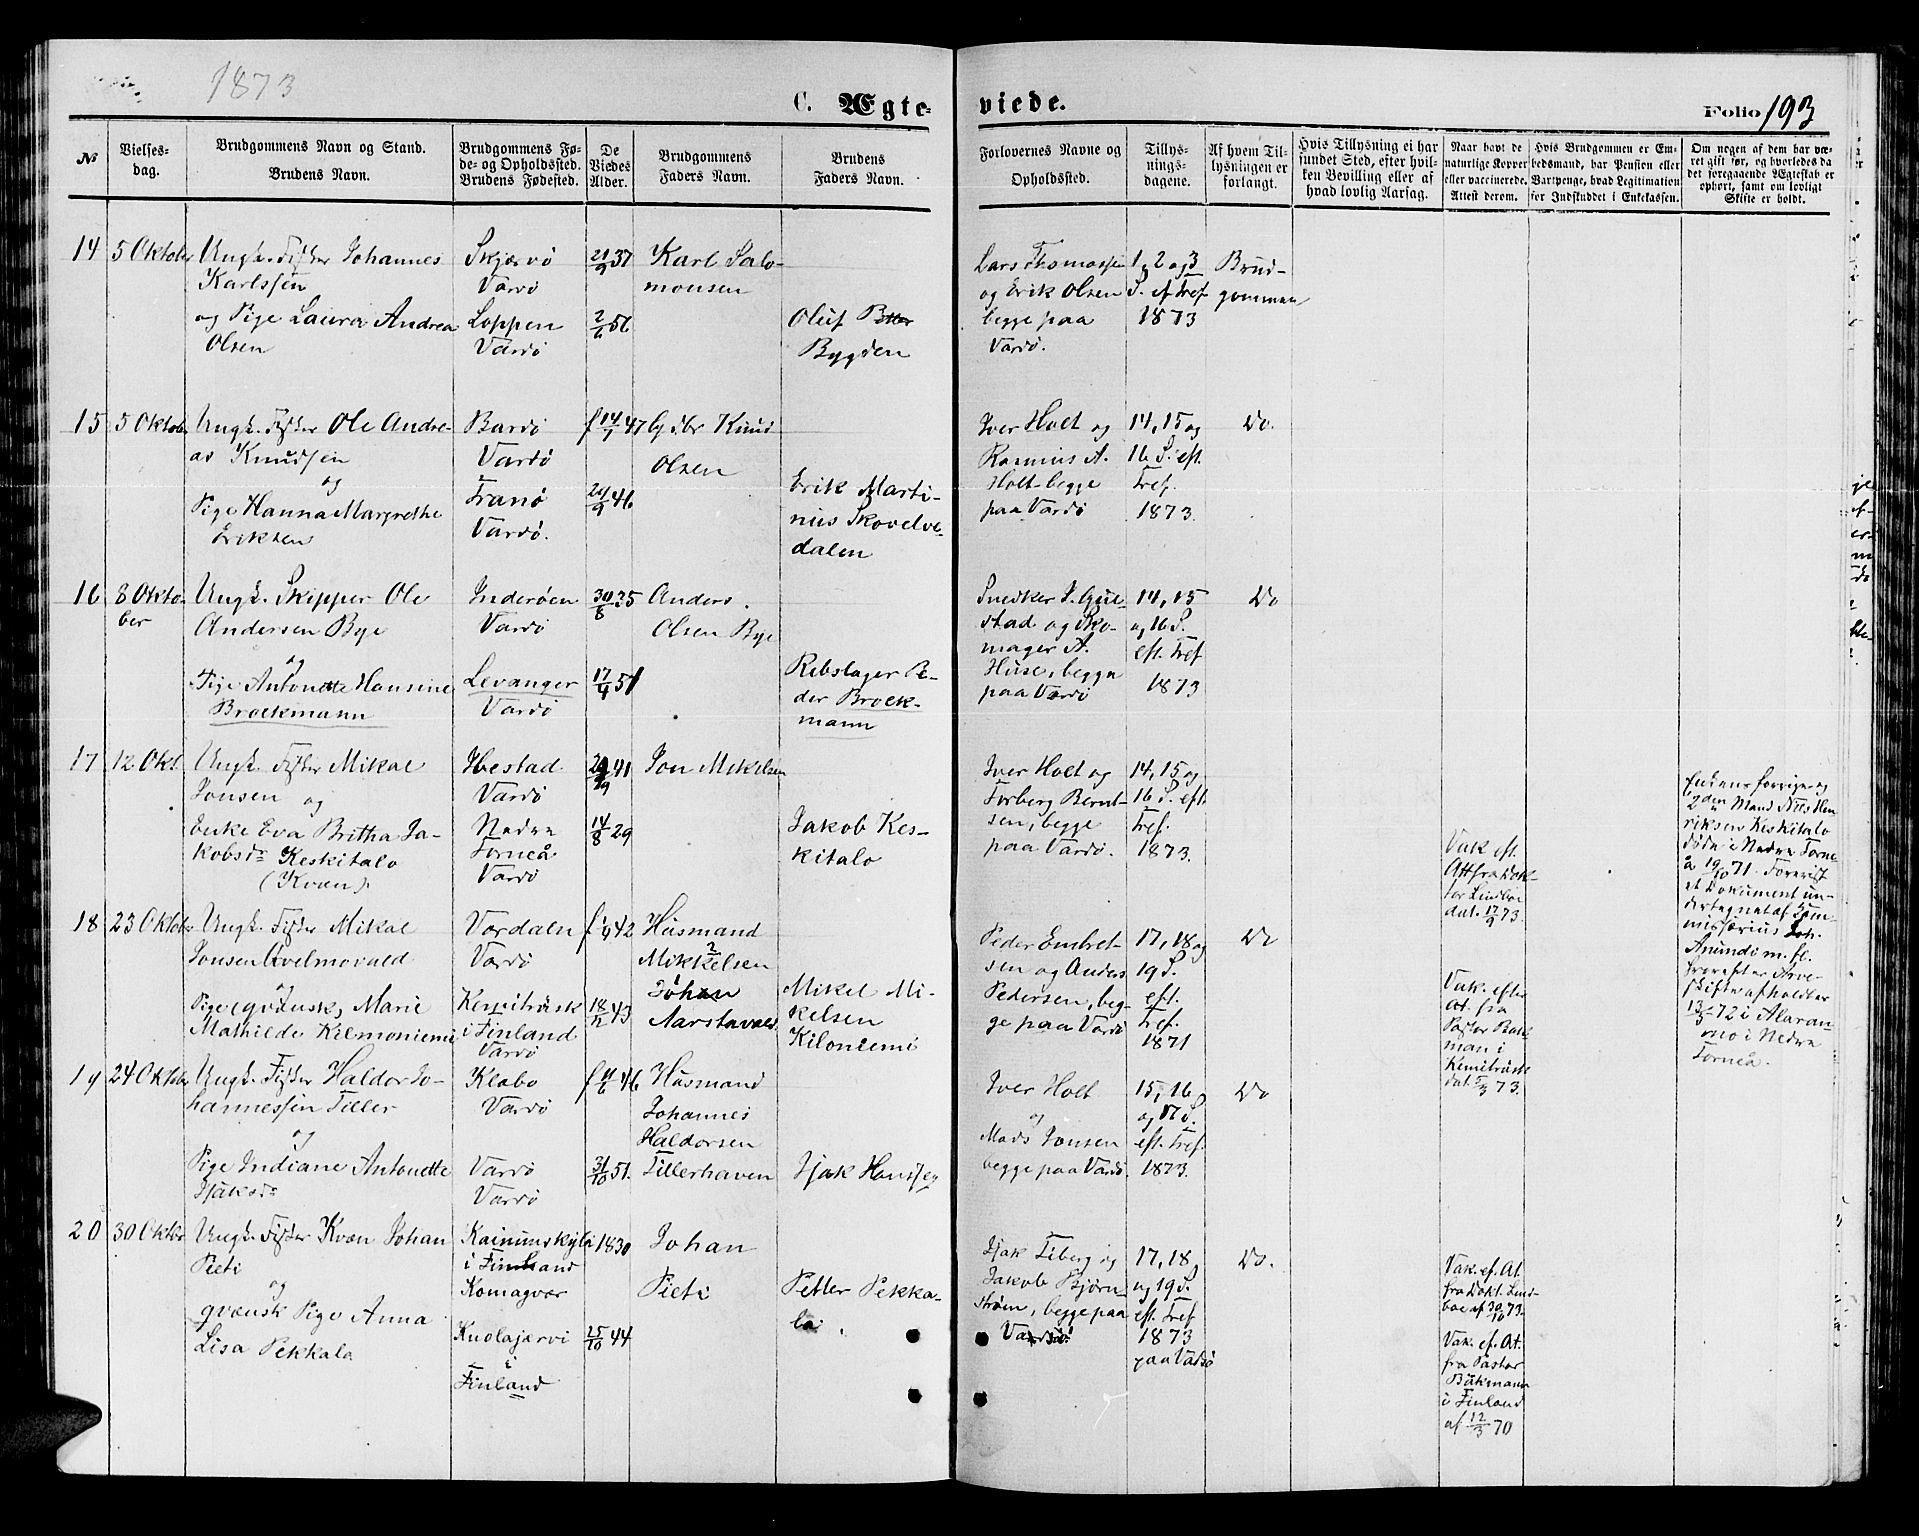 1873
C. Ægteviede.
Folio 193
№
Vielses-
dag.
Brudgommens Navn og Stand.
Brudens Navn.
Brudgommens Fø-
de- og Opholdssted.
Brudens Fødested.
De
Viedes
Alder.
Brudgommens
Faders Navn.
Brudens
Faders Navn.
Forlovernes Navne og
Opholdssted.
Tillys-
nings-
dagene.
Af hvem Til-
lysningen er
forlangt.
Hvis Tillysning ei har
fundet Sted, efter hvil-
ken Bevilling eller af
hvad lovlig Aarsag.
Naar havt de
naturlige Kopper
eller vaccinerede.
Attest derom.
Hvis Brudgommen er Em-
bedsmand, har Pension eller
Vartpenge, hvad Legitimation
for Indskuddet i Enkekassen.
Om nogen af dem har væ-
ret gift før, og hvorledes da
det foregaaende Ægteskab er
ophørt, samt om lovligt
Skifte er holdt.
14 5 Oktober
Ungk. Fisker Johannes
Karlssen
og Pige Laura Andrea
Olsen
Skjærvö
Vardö
Loppen
Vardö
21/9 37
2/6 56
Karl Salo-
monsen
Oluf Petter
Bygden
Lars Thomassen
og Erik Olsen
begge paa
Vardö.
1, 2 og 3
S. ef Tref
1873
Brud-
gommen
15 5 Oktob.
Ungk. Fisker Ole Andre-
as Knudsen
og
Pige Hanna Margrethe
Eriksen
Bardö
Vardö
Tranö
Vardö.
f 14/7 47
29/9 46
Gdbr Knud
Olsen
Erik Marti-
nius Skovelve-
dalen
Iver Holt og
Rasmus A.
Holt begge
paa Vardö
14, 15 og
16 S. eft.
Tref.
1873.
Do.
16 8 Okto-
ber
Ungk. Skipper Ole
Andersen Bye
og
Pige Antonette Hansine
Brockmann
Inderöen
Vardö
Levanger
Vardö
30/8 35
17/4 51
Anders
Olsen Bye
Rebslager Pe-
der Brock-
mann
Snedker S. Gul-
stad og Sko-
mager A.
Huse, begge
paa Vardö
14, 15
og 16 S.
eft. Tref
1873
Do
17 12 Okt.
Ungk. Fisker Mikal
Jonsen og
Enke Eva Britha Ja-
kobsdr Keskitalo
(Kvæn).
Ibestad
Vardö
Nedre
Torneå
Vardö
41
14/8 29
Jon Mikelsen
Jakob Kes-
kitalo
Iver Holt og
Torberg Bernt-
sen, begge
paa Vardö.
14, 15 og
16 S. eft
Tref.
1873.
Vak. eft.
Att fra Dok-
tor Lindboe
dat. 17/9 73.
Enkens forrige og
2den Mand Nils Hen
riksen Keskitalo
döde i Nedre Torne
å 19/10 71. Forevist
et Dokument un-
dertegnet af Kom-
missærius Joh.
Asundi m. fl.
hvorefter Arve-
skifte afholdt er
13/3 72 i Alaran-
mo i Nedre
Torneå.
18 23 Oktob.
Ungk. Fisker Mikal
Jonsen Kvelmovald
og
Pige (qvænsk) Marie
Mathilde Kilmoniemi
Værdalen
Vardö
Kemiträsk
i Finland
Vardö
42
18/12 43
Husmand
Mikkelsen
Johan
Aarstavald
Mikel Mi-
kelsen
Kiloniemi
Peder Embret-
sen og Anders
Pedersen, beg-
ge paa Vardö
17, 18 og
19 S.
eft.
Tref.
1871
Do
Vak. efter
At. fra
Pastor Bæk
man i
Kemiträsk
dat. 5/3 73.
19 24 Oktober
Ungk. Fisker Haldor Jo-
hannessen Tiller
og
Pige Indiane Antonette
Isaksdr
Klæbo
Vardö
Vardö
Vardö
46
31/10 51.
Husmand
Johannes
Haldorsen
Tillerhaven
Isak Hanssen
Iver Holt
og
Mads Jonsen
begge paa Vardö.
15, 16
og 17 S.
eft. Tref.
1873.
Do
20 30 Oktbr
Ungk. Fisker Kvæn Johan
Pieti
og
qvænsk Pige Anna
Lisa Pekkala
Kainunskylä
i Finland
Komagvær
Kuolajærvi
i
Finland
1830
25/10 44
Johan
Pieti
Petter Pekka-
la
Isak Tiberg og
Jakob Björn-
ström, begge paa
Vadsö
17, 18
og 19 S.
eft Tref
1873
paa Vadsö
Do.
Vak. ef. At.
fra Dokt. Lind-
boe af 30/10 73.
Vak. ef. At.
fra Pastor
Bäkmann
i Finland
af 12/3 70